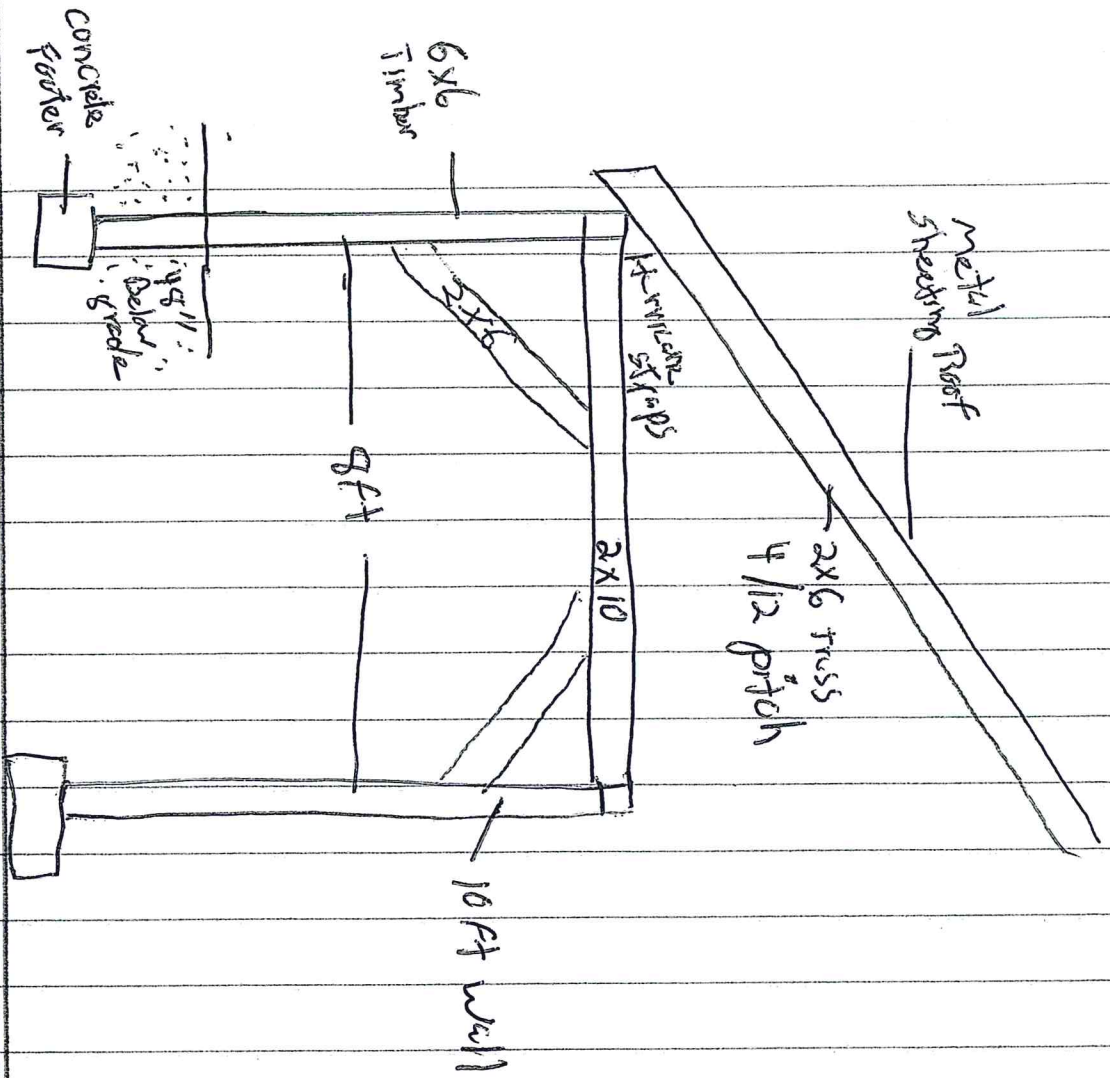 Metal
Sheeting Roof
2x6 truss
4/12 pitch
Hurricane
straps
6x6
Timber
2x10
2x6
10 ft wall
8ft
48"
Below
grade
concrete
Footer